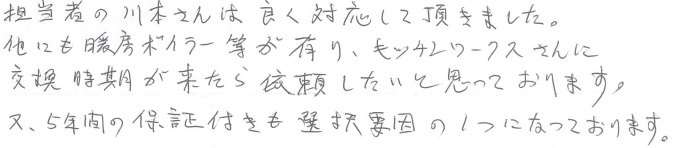 担当者の川本さんは良く対応して頂きました。
他にも暖房ボイラー等が有り、キッチンワークスさんに
交換時期が来たら依頼したいと思っております。
又、5年間の保証付きも選択要因の1つになっております。